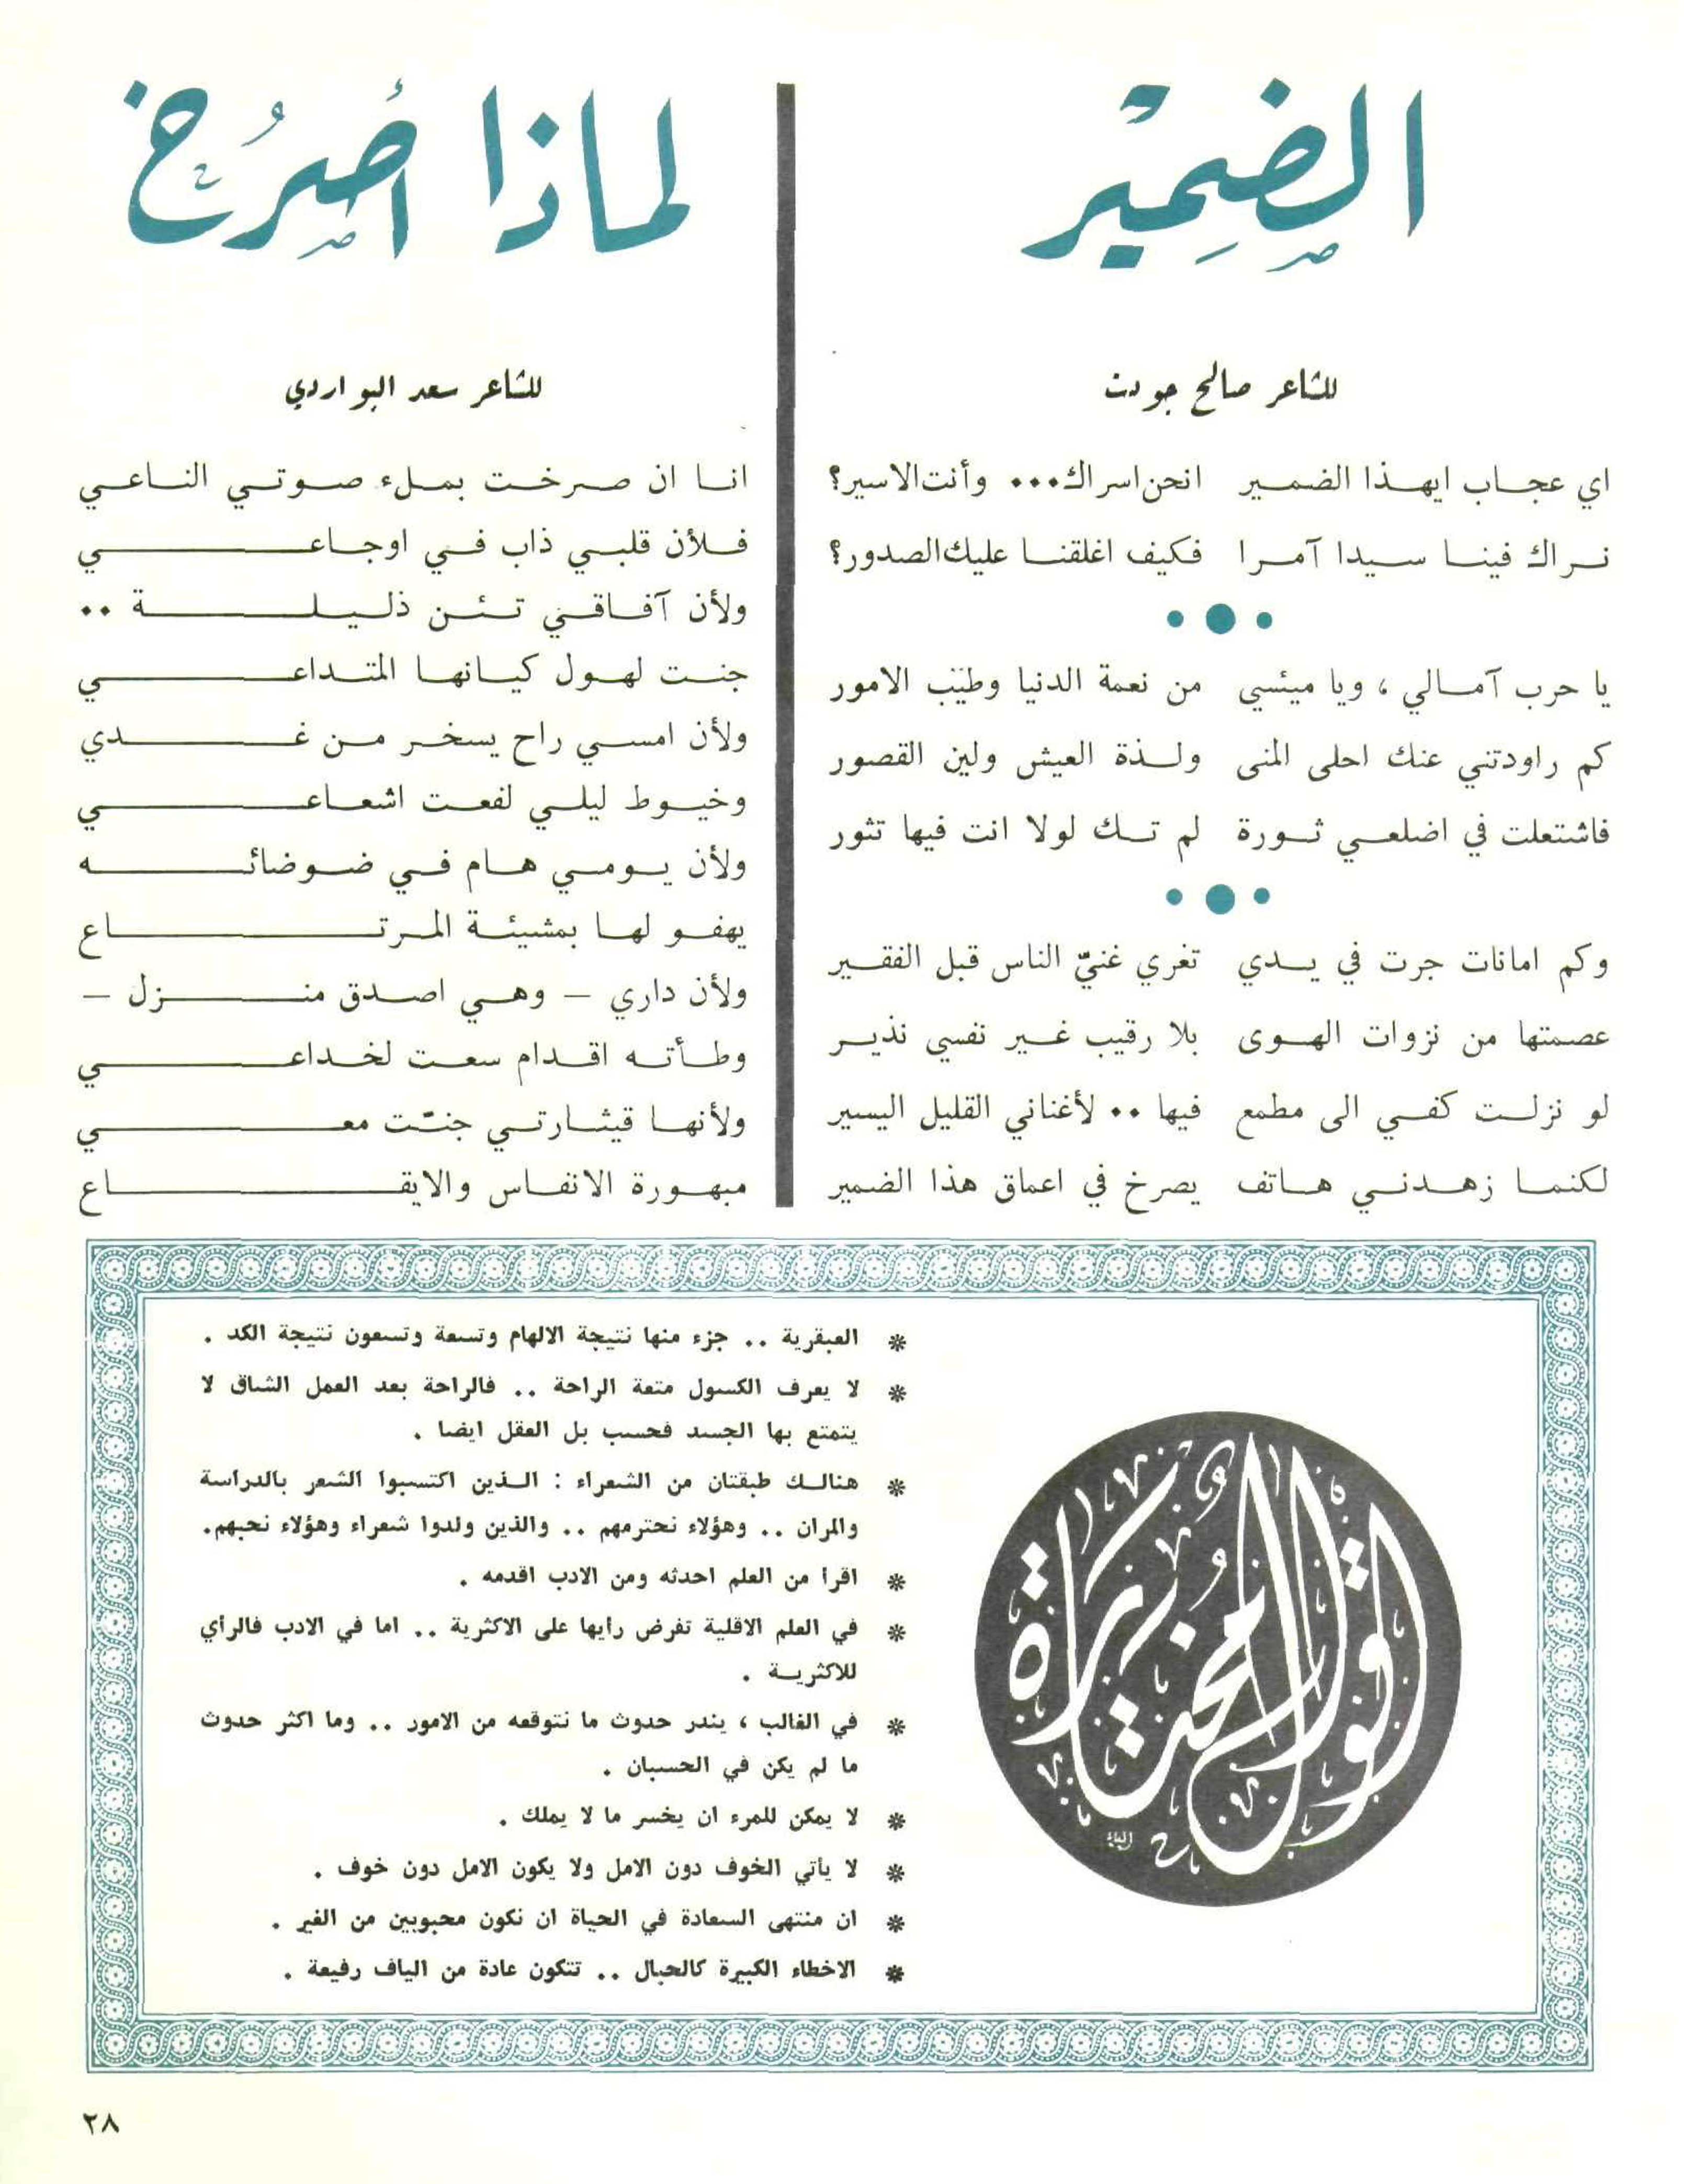 الضمير
للشاعر صالح جودت
اي عجاب ايهذا الضمير انحن اسراك... وأنت الاسير؟
نراك فينا سيدا آمرا فكيف اغلقنا عليك الصدور؟
يا حرب آمالي ، ويا ميئسي من نعمة الدنيا وطيّب الامور
كم راودتني عنك احلى المنى ولذة العيش ولين القصور
فاشتعلت في اضلعي ثورة لم تك لولا انت فيها تثور
وكم امانات جرت في يدي تغري غنيّ الناس قبل الفقير
عصمتها من نزوات الهوى بلا رقيب غير نفسي نذير
لو نزلت كفي الى مطمع فيها .. لأغناني القليل اليسير
لكنما زهدني هاتف يصرخ في اعماق هذا الضمير
لماذا أصرُخ
للشاعر سعد البواردي
انا ان صرخت بملء صوتي الناعي
فلأن قلبي ذاب في اوجاعي
ولأن آفاقي تئن ذليلة ..
جنت لهول كيانها المتداعي
ولأن امسي راح يسخر من غدي
وخيوط ليلي لفعت اشعاعي
ولأن يومي هام في ضوضائه
يهفو لها بمشيئة المرتاع
ولأن داري – وهي اصدق منزل –
وطأته اقدام سعت لخداعي
ولأنها قيثارتي جنّت معي
مبهورة الانفاس والايقاع
اقوال مختارة
* العبقرية .. جزء منها نتيجة الالهام وتسعة وتسعون نتيجة الكد .
* لا يعرف الكسول متعة الراحة .. فالراحة بعد العمل الشاق لا
يتمتع بها الجسد فحسب بل العقل ايضا .
* هنالك طبقتان من الشعراء : الذين اكتسبوا الشعر بالدراسة
والمران .. وهؤلاء نحترمهم .. والذين ولدوا شعراء وهؤلاء نحبهم.
* اقرا من العلم احدثه ومن الادب اقدمه .
* في العلم الاقلية تفرض رايها على الاكثرية .. اما في الادب فالرأي
للاكثرية .
* في الغالب ، يندر حدوث ما نتوقعه من الامور .. وما اكثر حدوث
ما لم يكن في الحسبان .
* لا يمكن للمرء ان يخسر ما لا يملك .
* لا يأتي الخوف دون الامل ولا يكون الامل دون خوف .
* ان منتهى السعادة في الحياة ان نكون محبوبين من الغير .
* الاخطاء الكبيرة كالحبال .. تتكون عادة من الياف رفيعة .
٢٨